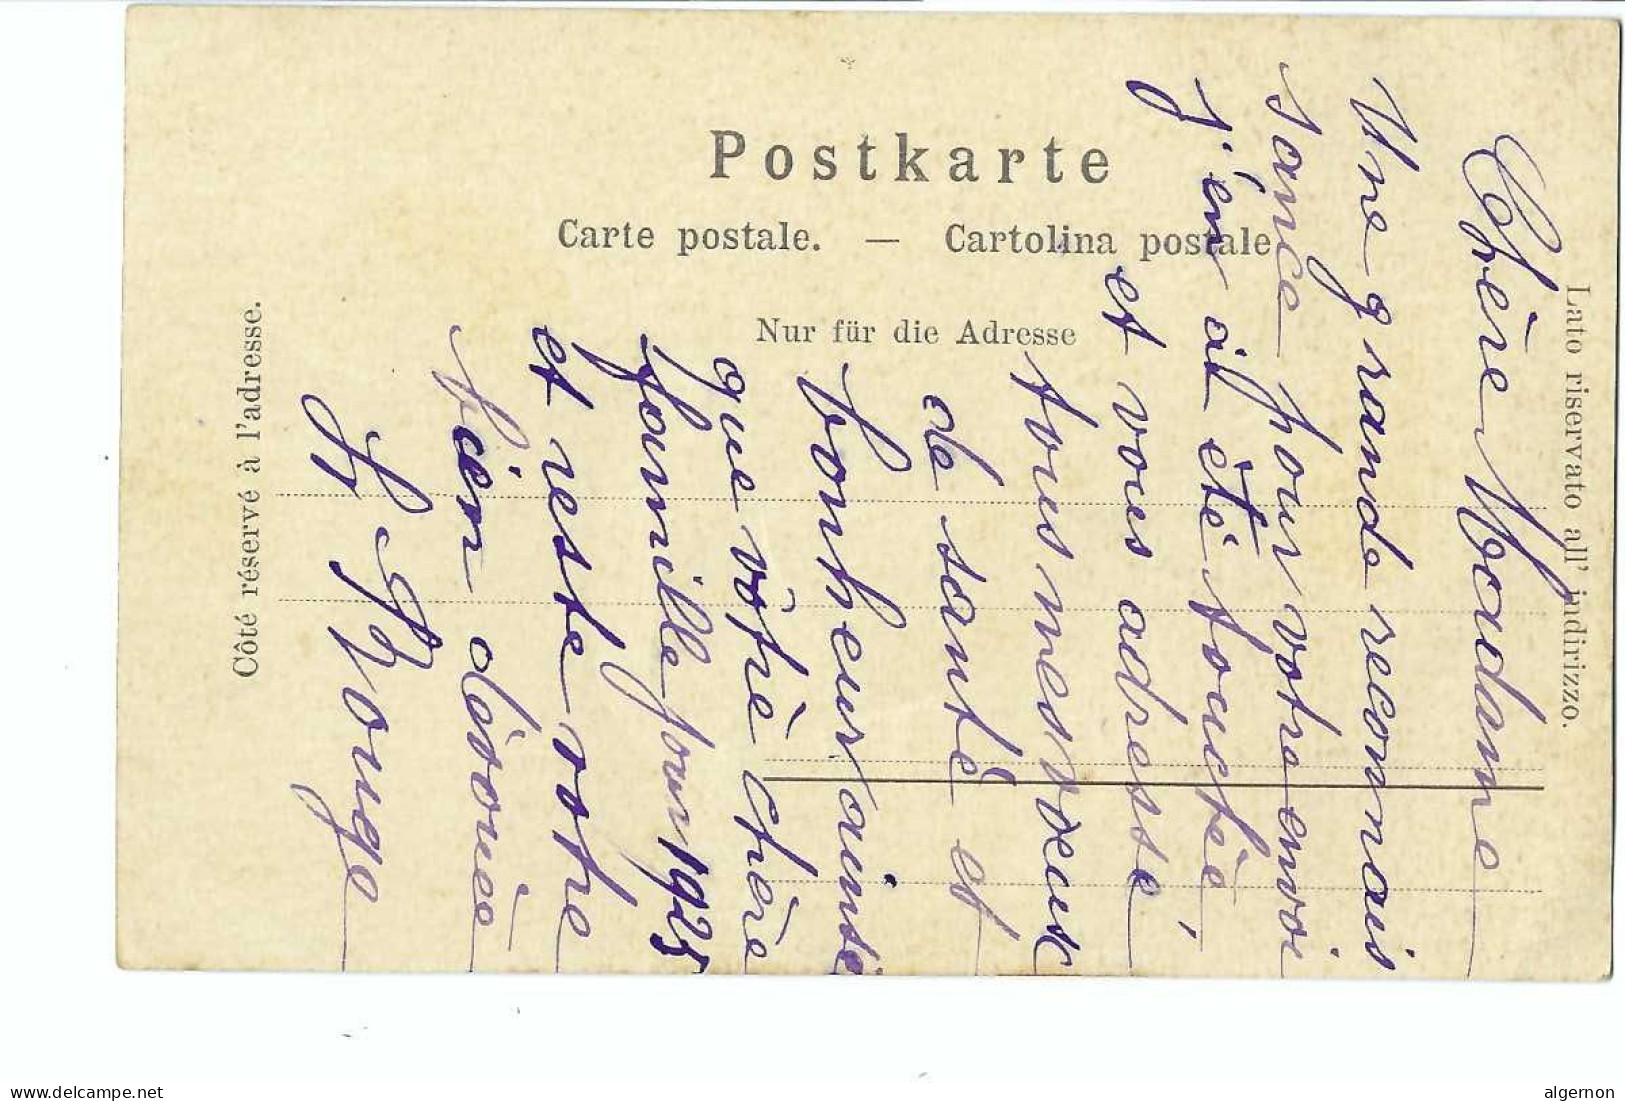 Postkarte
Carte postale. — Cartolina postale
Nur für die Adresse
Côté réservé à l'adresse.
Lato riservato all' indirizzo.
Chère Madame
Une grande reconnais
sance pour votre envoi
j'en ai été touchée,
et vous adresse
tous mes vœux
de santé et
bonheur ainsi
que vôtre chère
famille pour 1925
et reste votre
bien dévouée
Rouge
delcampe.net
algernon